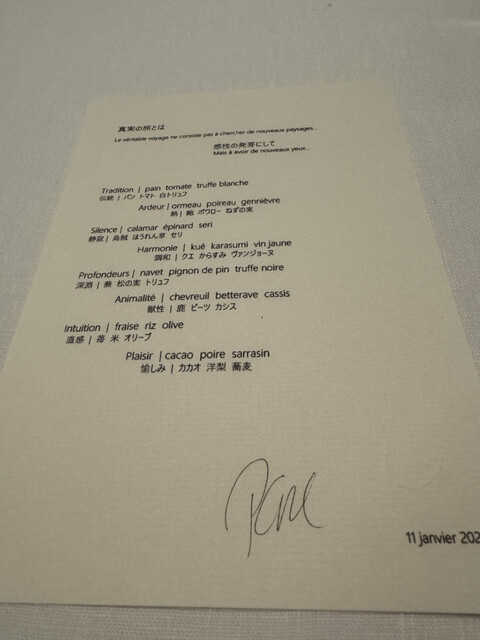 真実の旅とは
Le véritable voyage ne consiste pas à chercher de nouveaux paysages...
感性の発芽にして
Mais à avoir de nouveaux yeux...
Tradition | pain tomate truffe blanche
伝統 | パン トマト 白トリュフ
Ardeur | ormeau poireau gennièvre
熱 | 鮑 ポワロー ねずの実
Silence | calamar épinard seri
静寂 | 烏賊 ほうれん草 セリ
Harmonie | kué karasumi vin jaune
調和 | クエ からすみ ヴァンジョーヌ
Profondeurs | navet pignon de pin truffe noire
深淵 | 蕪 松の実 トリュフ
Animalité | chevreuil betterave cassis
獣性 | 鹿 ビーツ カシス
Intuition | fraise riz olive
直感 | 苺 米 オリーブ
Plaisir | cacao poire sarrasin
愉しみ | カカオ 洋梨 蕎麦
11 janvier 202